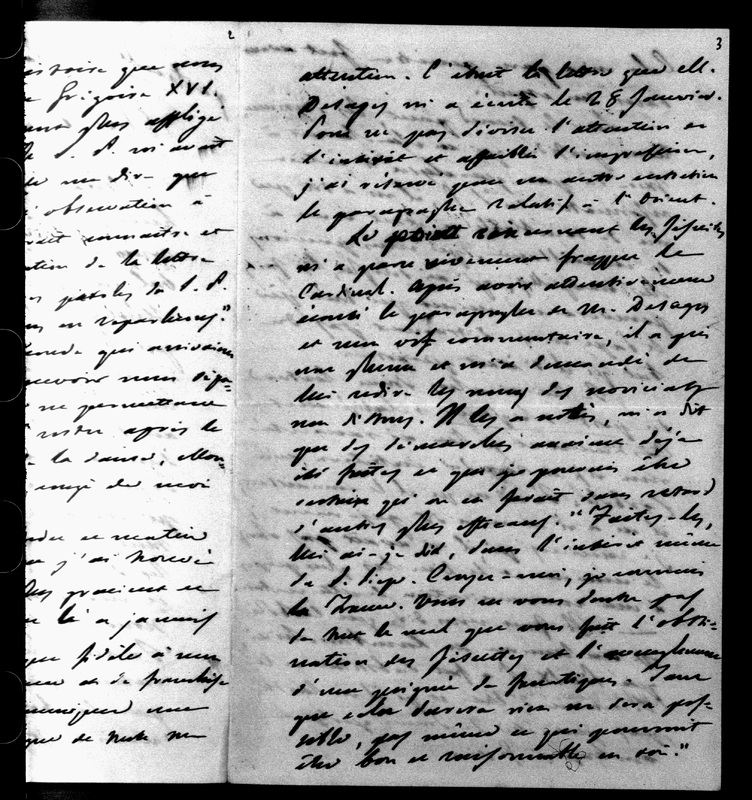 2
que nous
Grégoire XVI.
plus affligé
S. P. m'avait
me dire que
observation à
connaître et
de la lettre
paroles de S. P.
qui arrivaient
pouvoir nous
ne permettrait
après le
la danse,
de moi
matin
j'ai trouvé
a jamais
que fidèle à
et de franchise
une
que de
3
attention. C'était la lettre que M.
Desages m'a écrite le 28 Janvier.
Pour ne pas diviser l'attention et
l'intérêt et affaiblir l'impression,
j'ai réservé pour un autre entretien
le paragraphe relatif à l'Orient.
Le point concernant les Jésuites
m'a paru vivement frapper le
Cardinal. Après avoir attentivement
écouté le paragraphe de M. Desages
et mon vif commentaire, il a pris
une plume et m'a demandé de
lui redire les noms des noviciats
non dissous. Il les a notés, m'a dit
que des démarches avaient déjà
été faites et que je pouvais être
certain qu'on en ferait sans retard
d'autres plus efficaces. "Faites-les,
lui ai-je dit, dans l'intérêt même
du S. Siège. Croyez-moi, je connais
la France. Vous ne vous doutez pas
de tout le mal que vous fait l'obsti-
nation des Jésuites et l'aveuglement
d'une poignée de fanatiques. Tant
que cela durera rien ne sera pos-
sible, pas même ce qui pourrait
être bon et raisonnable en soi."